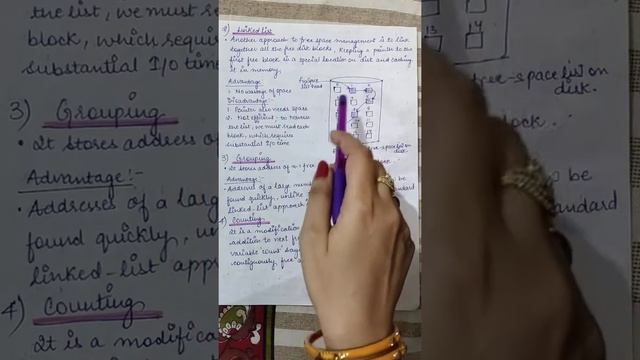 2) Linked list
• Another approach to free space management is to link
together all the free disk blocks, keeping a pointer to the
first free block in a special location on disk and caching
it in memory.
Advantage
• No wastage of space
Disadvantage:-
1. Pointer also needs space
2. Not efficient - to traverse
the list, we must read each
block, which requires
substantial I/O time
free-space list on
disk.
3) Grouping
• It stores address of n-1 free
Advantage:-
• Addresses of a large
found quickly, unlike
standard
linked-list approach
4) Counting
It is a modification
addition to next
variable 'count'
contiguously, free
the list, we mus
block, which requi
substantial I/o time
3) Grouping
• It stores address o
Advantage:-
• Addresses of a larg
found quickly, un
linked-list appr
4) Counting
It is a modific
13
14
ee-space list on
disk.
to be
standard